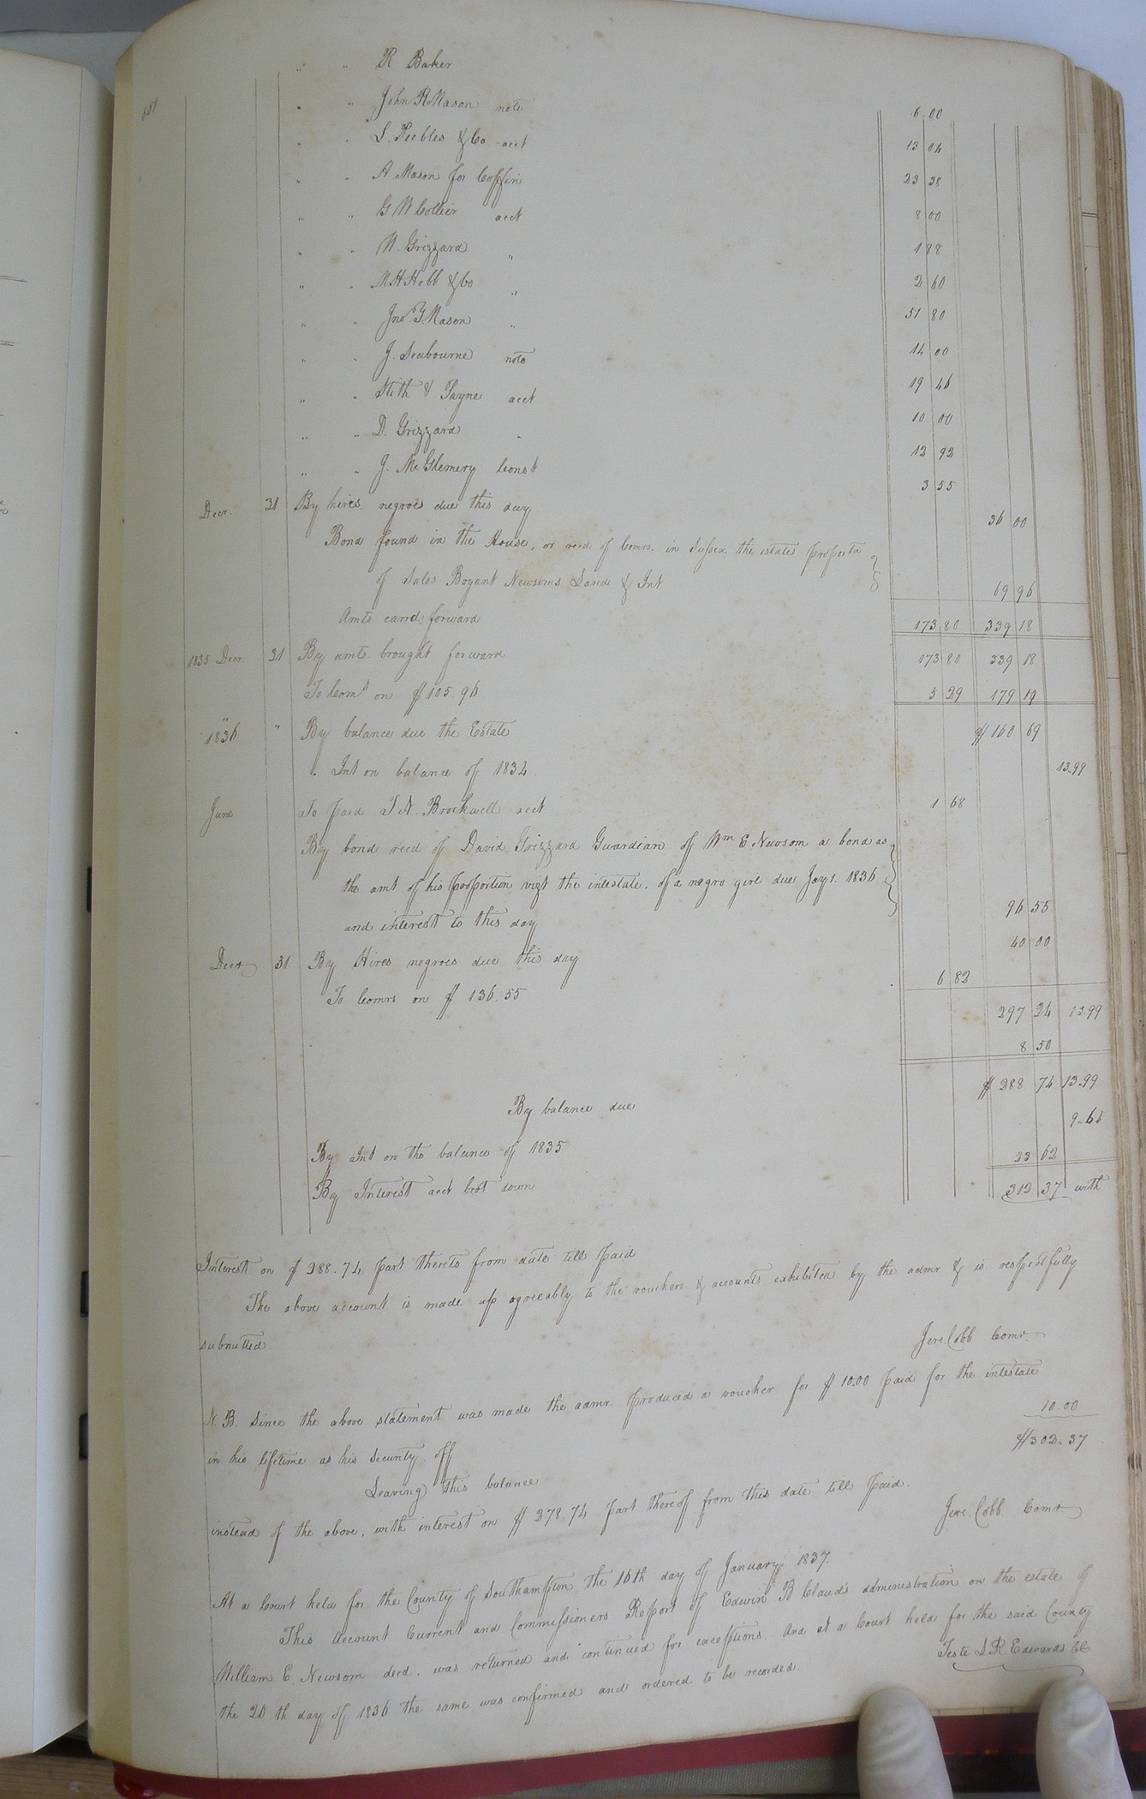 " " R Baker 6 00
" " John R Mason note 13 04
" " S. Peebles & Co acct 23 38
" " A. Mason for Coffin 8 00
" " G W Collier acct 1 88
" " N. Grizzard " 2 60
" " M H Hobb & Co " 51 80
" " Jno Y. Mason " 14 00
" " J. Seabourne note 19 46
" " Stith & Payne acct 10 00
" " D. Grizzard " 12 92
" " J. McGlemery Const 3 55
Decr. 31 By hires negroes due this day 36 00
Bond found in the House, or recd of Comrs. in Sussex the estates proportn
of Sales Boyant Newsoms Land & Int 69 96
Amts carrd forward 173 80 339 18
1835 Decr. 31 By amts. brought forward 173 80 339 18
To Coms on $105.96 5 29 179 19
" " By balance due the Estate $160 69
1836 " Int on balance of 1834 13.99
June To paid T A. Brockwell acct 1 68
By bond recd of David Grizzard Guardian of Wm E Newsom a bond as
the amt of his proportion vizt the intestate. of a negro girl due Jay 1. 1836
and interest to this day 96 55
Decr 31 By Hires negroes due this day 40 00
To Comrs on $136.55 6 82
297 24 13.99
8 50
By balance due $288 74 13.99
By Int on the balance of 1835 9.64
By Interest acct brot down 23 62
312 37 with
Interest on $288.74 part thereto from date till paid
The above account is made up agreeably to the vouchers & accounts exhibited by the admr & is respectfully
submitted. Jere. Cobb Comr.
N. B. Since the above statement was made the admr. produced a voucher for $10.00 paid for the intestate
in his lifetime as his security off 10.00
Leaving this balance $302.37
instead of the above, with interest on $278.74 part thereof from this date till paid.
Jere. Cobb Comr
At a Court held for the County of Southampton the 16th day of January 1837.
This Account Current and Commissioners Report of Edwin B Clauds administration on the estate of
William E Newsom decd. was returned and continued for exceptions. And at a Court held for the said County
the 20th day of 1836 the same was confirmed and ordered to be recorded.
Teste L R Edwards Clk